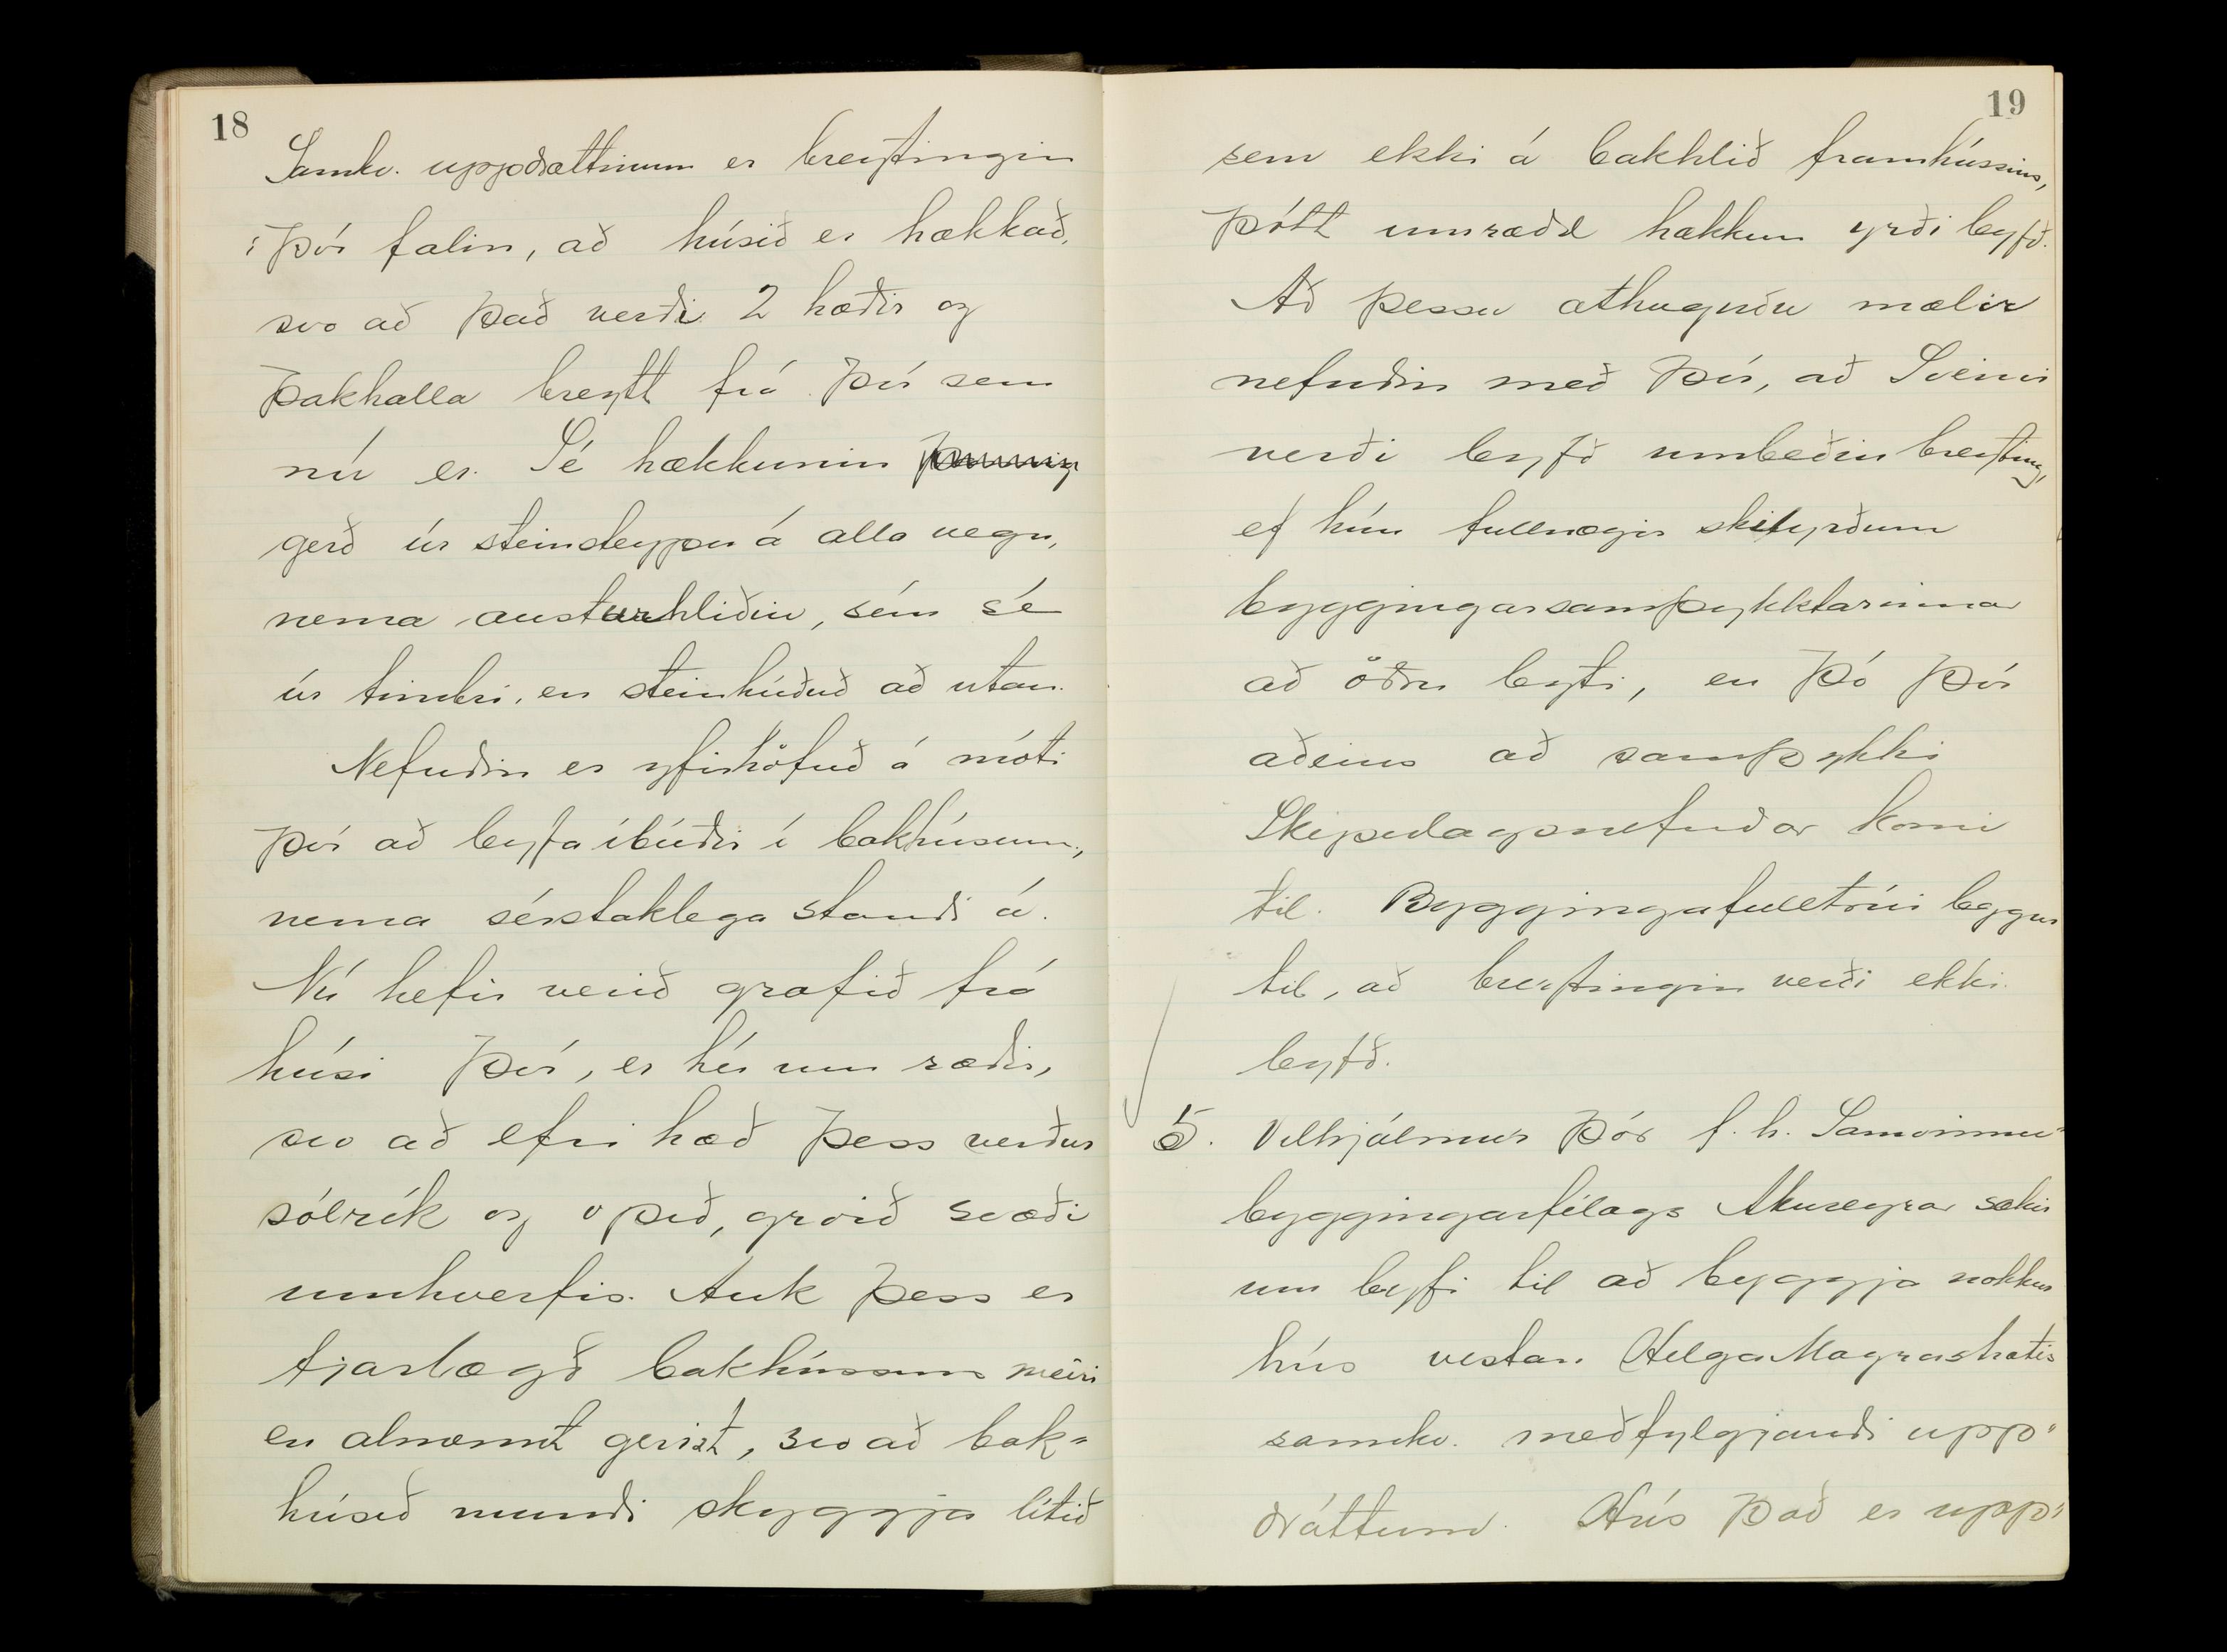 18
Samkv. uppdrættinum er breytingin
í því falin, að húsið er hækkað,
svo að það verði 2 hæðir og
þakhalla breytt frá því sem
nú er. Sé hækkunin
gerð úr steinsteypu á alla vegu,
nema austurhliðin, sem sé
úr timbri, en steinhúðuð að utan.
Nefndin er yfirhöfuð á móti
því að leyfa íbúðir í bakhúsum,
nema sérstaklega standi á.
Nú hefir verið grafið frá
húsi því, er hér um ræðir,
svo að efri hæð þess verður
sólrík og opið, gróið svæði
umhverfis. Auk þess er
fjarlægð bakhússins meiri
en almennt gerist, svo að bak-
húsið mundi skyggja lítið
19
sem ekki á bakhlið framhússins,
þótt umrædd hækkun yrði leyfð.
Að þessu athuguðu mælir
nefndin með því, að Sveini
verði leyfð umbeðin breyting,
ef hún fullnægir skilyrðum
byggingarsamþykktarinnar
að öðru leyti, en þó því
aðeins að samþykki
Skipulagsnefndar komi
til. Byggingafulltrúi leggur
til, að breytingin verði ekki
leyfð.
5. Vilhjálmur Þór f. h. Samvinnu-
byggingarfélags Akureyrar sækir
um leyfi til að byggja nokkur
hús vestan Helga Magrastrætis
samkv. meðfylgjandi upp-
dráttum. Hús það er upp-